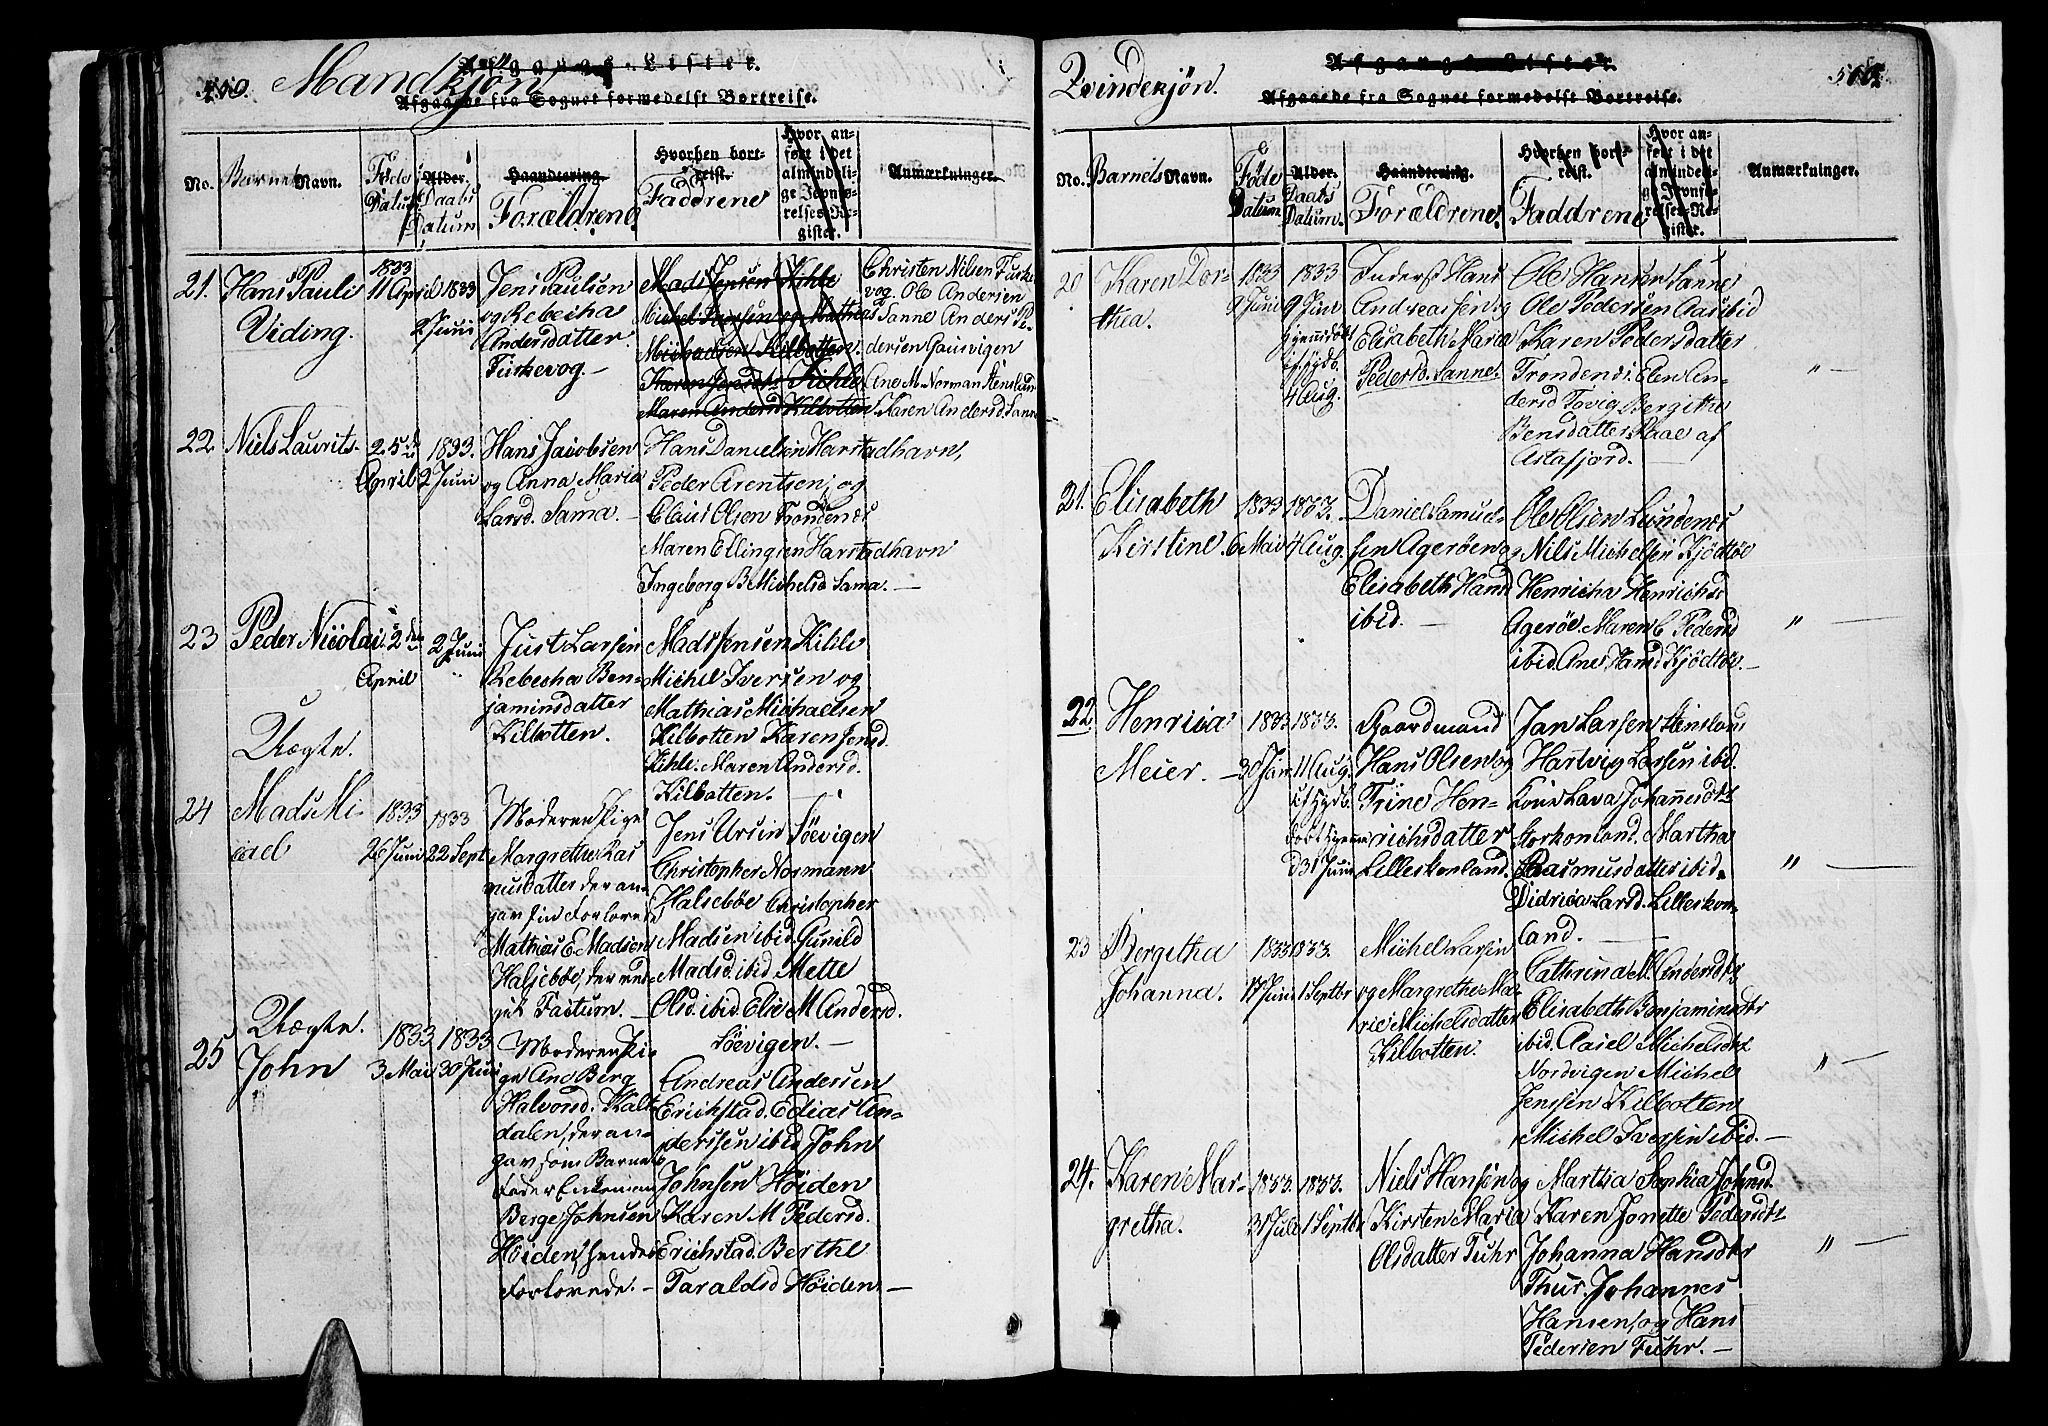 510. Mandkjön
Afgangs-Lister.
Afgaaede fra Sognet formedelst Bortreise.
No. Barnets Navn.
Föde Datum
Alder. Daabs Datum
Haandtering. Forældrene.
Hvorhen bortreist. Faddrene
Hvor anført i det almindelige Jevnførelses-Register.
Anmærkninger.
21. Hans Pauli
Viding.
1833
11 April
1833
2 Juni
Jens Paulsen
og Rebecka
Andersdatter
Mads Jensen Kihle
Michaelsen Kilbotten.
Maren Andersd Kilbotten
Christen Nilsen
Ole Andersen
Sanne Anders Pe-
dersen Gausvigen
Ane M. Norman
Maren Andersd Sanne
22 Niels Laurits
25de
April
1833.
2 Juni
Hans Jacobsen
og Anna Maria
Larsd. Sama.
Hans Danielsen Harstadhavn,
Peder Arentsen, og
Claus Olsen Trondenes
Maren Ellingsen Harstadhavn
Ingeborg B Michelsd Sama. —
23 Peder Nicolai
2den
April
2 Juni
Just Larsen
Rebecka Ben-
jaminsdatter
Kilbotten.
Mads Jensen Kihle
Michel Iversen og
Mathias Michaelsen
Kilbotten Karen Jensd.
Kihle. Maren Andersd.
Kilbotten. —
Uægte.
24 Mads Mi-
cael
1833
26 Juni
1833
22 Sept
Moderen Pige
Margrethe Ras
musdatter der an-
gav sin Forlovede
Mathias E Madsen
Halsebøe, der ved-
gik Factum. —
Jens Ursin Söevigen
Christopher Normann
Halsebøe Christopher
Madsen ibid Gunild
Madsd. ibid. Mette
Olsd. ibid. Else M Andersd.
Söevigen. —
Uægte.
25 John
1833
3 Mai
1833
30 Juni
Moderen Pi-
ge Ane Berg
Halvorsd. Kalt-
dalen, der an-
gav som Barnets
Fader Enkeman
Berge Johnsen
Höiden, hendes
Forlovede. —
Andreas Andersen
Erichstad. Edias An-
derssen ibid John
Johnsen Höiden
Karen M Pedersd.
Erichstad. Berthe
Taraldsd Höiden. —
Qvindekjön.
Afgangs-Lister.
Afgaaede fra Sognet formedelst Bortreise.
No. Barnets Navn.
Föde Datum
Alder. Daabs Datum.
Haandtering. Forældrene.
Hvorhen bortreist. Faddrene
Hvor anført i det almindelige Jevnførelses-Register.
Anmærkninger.
20 Karen Dor-
thea.
1833
9 Juni
1833
9 Jun
4 Aug.
Inderst Hans
Andreassen og
Elisabeth Maria
Pedersd. Sanne.
Ole Hansen Sanne
Ole Pedersen Aas ibid
Karen Pedersdatter
Trondenes Elen An-
dersd Tovig Bergithe
Bensdatter af
Astafjord. —
21. Elisabeth
Kirstine.
1833
6 Mai
1833.
4 Aug.
Daniel Samuel-
sen Ageröen og
Elisabeth Hansd
ibid. —
Ole Olsen Lundenes
Nils Michelsen Kjödtöe
Henricha Henrichsd
Ageröe. Maren C Pedersd
ibid. Ane Hansd Kjödtöe. —
22 Henrica
Meier. —
1833
30 Jan
1833.
11 Aug.
döbt hjemme
d 31 Juni
Gaardmand
Hans Olsen og
Trine Hen-
richsdatter
Lilleskonland.
Jan Larsen Stensland
Hartvig Larsen ibid.
Lava Johannesdtr
Storkonland. Martha
Rasmusdatter ibid.
Didrica Larsd. Lilleskon-
land. —
23 Bergitha
Johanna.
1833
17 Juni
1833.
1 Septbr
Michel Larsen
og Margrethe Ma-
rie Michelsdatter
Kilbotten.
Cathrina M. Andersdtr
Elisabeth Benjaminsdtr
ibid. Axiel Michelsdtr
Nordvigen Michel
Jenssen Kilbotten
Michel Iversen ibid. —
24. Karen Mar-
gretha.
1833.
31 Jule
1833.
1 Septbr
Niels Hansen og
Kirsten Maria
Olsdatter Fuhr
Martha Sophia Johnsd.
Karen Jonette Pedersdtr
Johanna Hansdtr
Thur. Johannes
Hansen, og Hans
Pedersen Fuhr. —